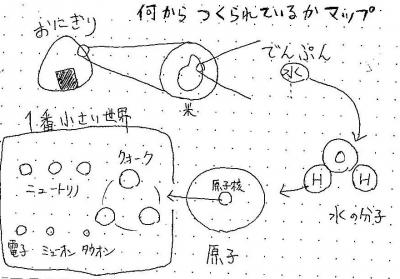 何からつくられているかマップ
おにぎり
米
でんぷん
水
O
H H
水の分子
原子核
原子
1番小さい世界
クォーク
ニュートリノ
電子 ミューオン タウオン